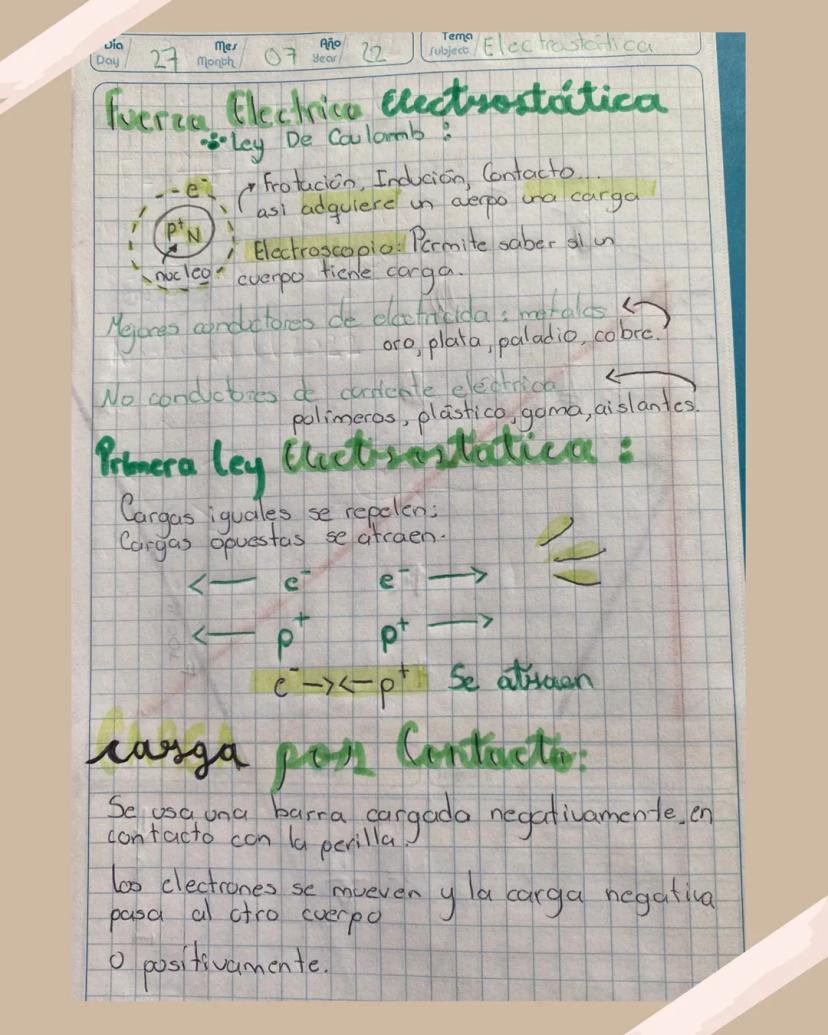 Día Day 27 Mes Month 07 Año Year 22 Tema Subject Electrostática
Fuerza Electrica Electrostática
Ley De Coulomb:
Frotución, Indución, Contacto...
asi adquiere un cuerpo una carga
e⁻
P⁺N
nucleo
Electroscopio: Permite saber si un
cuerpo tiene carga.
Mejores conductores de electricida: metales
oro, plata, paladio, cobre.
No conductores de corriente eléctrica
polímeros, plástico, goma, aislantes.
Primera Ley Electrostatica:
Cargas iguales se repelen;
Cargas opuestas se atraen.
<— e⁻ e⁻ —>
<— p⁺ p⁺ —>
e⁻ —><— p⁺ Se atraen
carga por Contacto:
Se usa una barra cargada negativamente, en
contacto con la perilla.
Los electrones se mueven y la carga negativa
pasa al otro cuerpo
o positivamente.